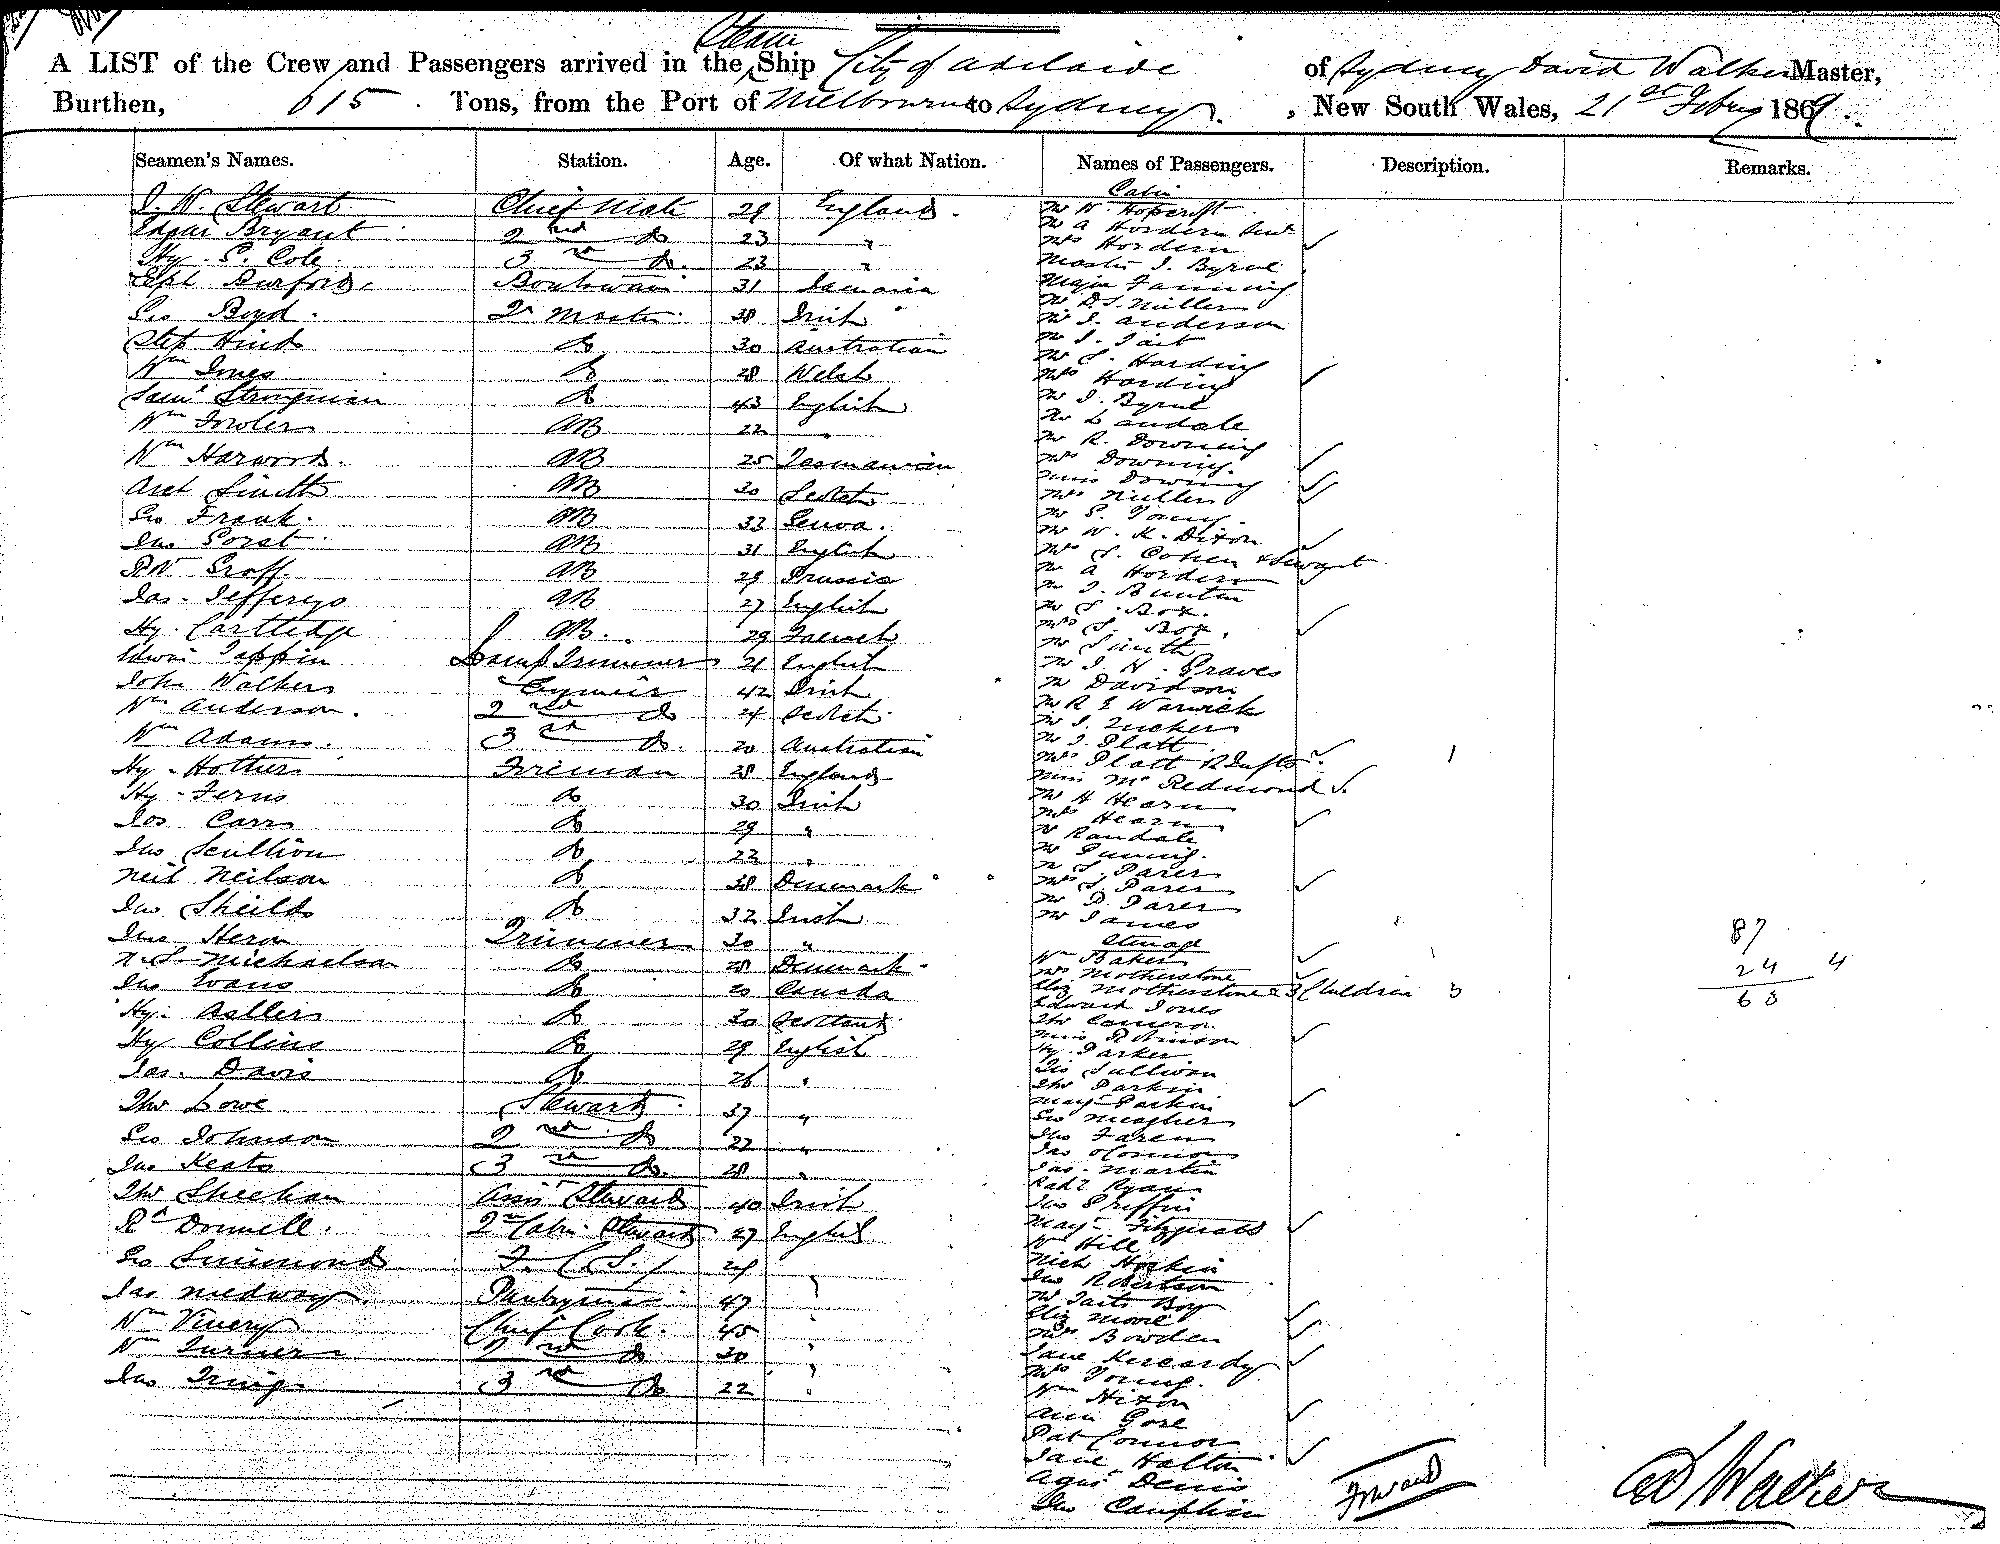 Steam
A LIST of the Crew and Passengers arrived in the Ship City of Adelaide of Sydney David Walker Master,
Burthen, 615 Tons, from the Port of Melbourne to Sydney, New South Wales, 21st Febry 1869.
Seamen's Names. Station. Age. Of what Nation. Names of Passengers. Description. Remarks.
J. W. Stewart Chief Mate 29 England
Edgar Bryant 2nd Do 23 "
Hy. S. Cole 3rd Do. 23 "
Burford 31 Jamaica
Geo Boyd Qr Master 38 Irish
Step Hind Do 30 Australian
Wm Jones Do 28 Welsh
Saml Strongman Do 43 English
Wm Fowler AB 22 "
Wm Harwood. AB 25 Tasmanian
Smith AB 30 Scotch
Geo Frank. AB 33
Jno AB 31 English
AB 29 Prussia
Jas. Jefferys AB 27 English
Hy. Cartledge AB. 29 French
Edwin Tappin Lamp Trimmer 21 English
John Walker 42 Irish
Wm Anderson. 2nd Do 24 Scotch
Wm Adams. 3rd Do. 20 Australian
Hy. Fireman 28 England
Hy. Ferns Do 30 Irish
Jos Carr Do 29 "
Jno Scullion Do 22 "
Neil Neilson Do 38 Denmark
Jno Sheilds Do 32 Irish
Jno Heron Trimmer 30 "
N. S. Michaelson Do 28 Denmark
Jno Evans Do 20 Canada
Hy. Do 30 Scotland
Hy Collins Do 29 English
Jas. Davis Do 26 "
Thos Lowe Steward 37 "
Geo Johnson 2nd Do 22 "
Jno Keats 3rd Do. 28 "
Thos Sheehan Steward 40 Irish
Rd Donnell. 2nd Cabin Steward 27 English
Geo Simmonds F. C. S. 24
Jas Medway Pantryman 47
Wm Vinery Chief Cook. 45
Wm Turner 2nd Do 30
Jno 3rd Do 22
Cabin
Mr W. Hopcroft
Mr A Hordern Senr
Mrs Hordern
Master J. Byrne
Major Fanning
Mr D. S. Miller
Mr J. Anderson
Mr J. Tait
Mr S. Harding
Mrs Harding
Mr J. Byrne
Mr Landale
Mr R. Downing
Mrs Downing.
Miss Downing
Mrs Miller
Mr S. Young.
Mr W. K. Dixon
Mrs S. Cohen & Servant
Mr A Hordern
Mr J. Buntin
Mr S. Box.
Mrs S. Box.
Mr Smith
Mr J. H. Graves
Mr Davidson
Mr R E Warwick
Mr J. Zucker
Mr J. Platt
Mrs Platt & Infts 1
Miss McRedmond
Mr H Hearn
Mrs Hearn
Mr Randale
Mr
Mr S. Parer
Mrs S. Parer
Mr D. Parer
Mr James
Steerage
Wm Baker
Mrs Motherstone
Eliz Motherstone & 3 Children 3
Edward Jones
Thos Cameron
Miss Robinson
Hy. Parker
Geo Sullivan
Thos Parkin
Mary Parkin
Geo Meagher
Jno Faren
Jas OConnor
Jas. Martin
Ryan
Jno Griffin
Mary Fitzgerald
Wm Hill
Nich Hoskin
Jno Robertson
Mr Taits Boy
Eliz Moore
Mrs Bowden
Jane
Mrs Young.
Wm Hixon
Ann Gore
Pat Connor
Jane Halton
Agnes Denis
Jno
87
24 4
63
Forward
D Walker